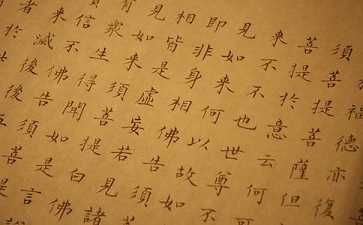 福德亦復
須菩提菩薩但
菩提於意云何可
來不不也世尊不
見如來何以故如
即非身相佛告須菩
相皆是虛妄若見諸
見如來須菩提白佛
有眾生得聞如是言
信不佛告須菩
來滅後後
者於